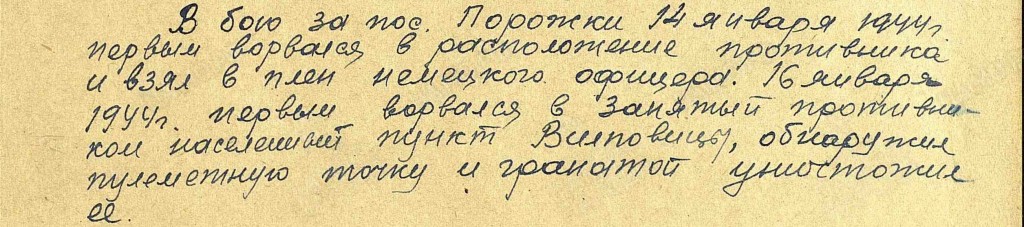 В бою за пос. Порожки 14 января 1944г.
первым ворвался в расположение противника
и взял в плен немецкого офицера. 16 января
1944г. первым ворвался в занятый противни-
ком населенный пункт Вилповицы, обнаружил
пулеметную точку и гранатой уничтожил
ее.